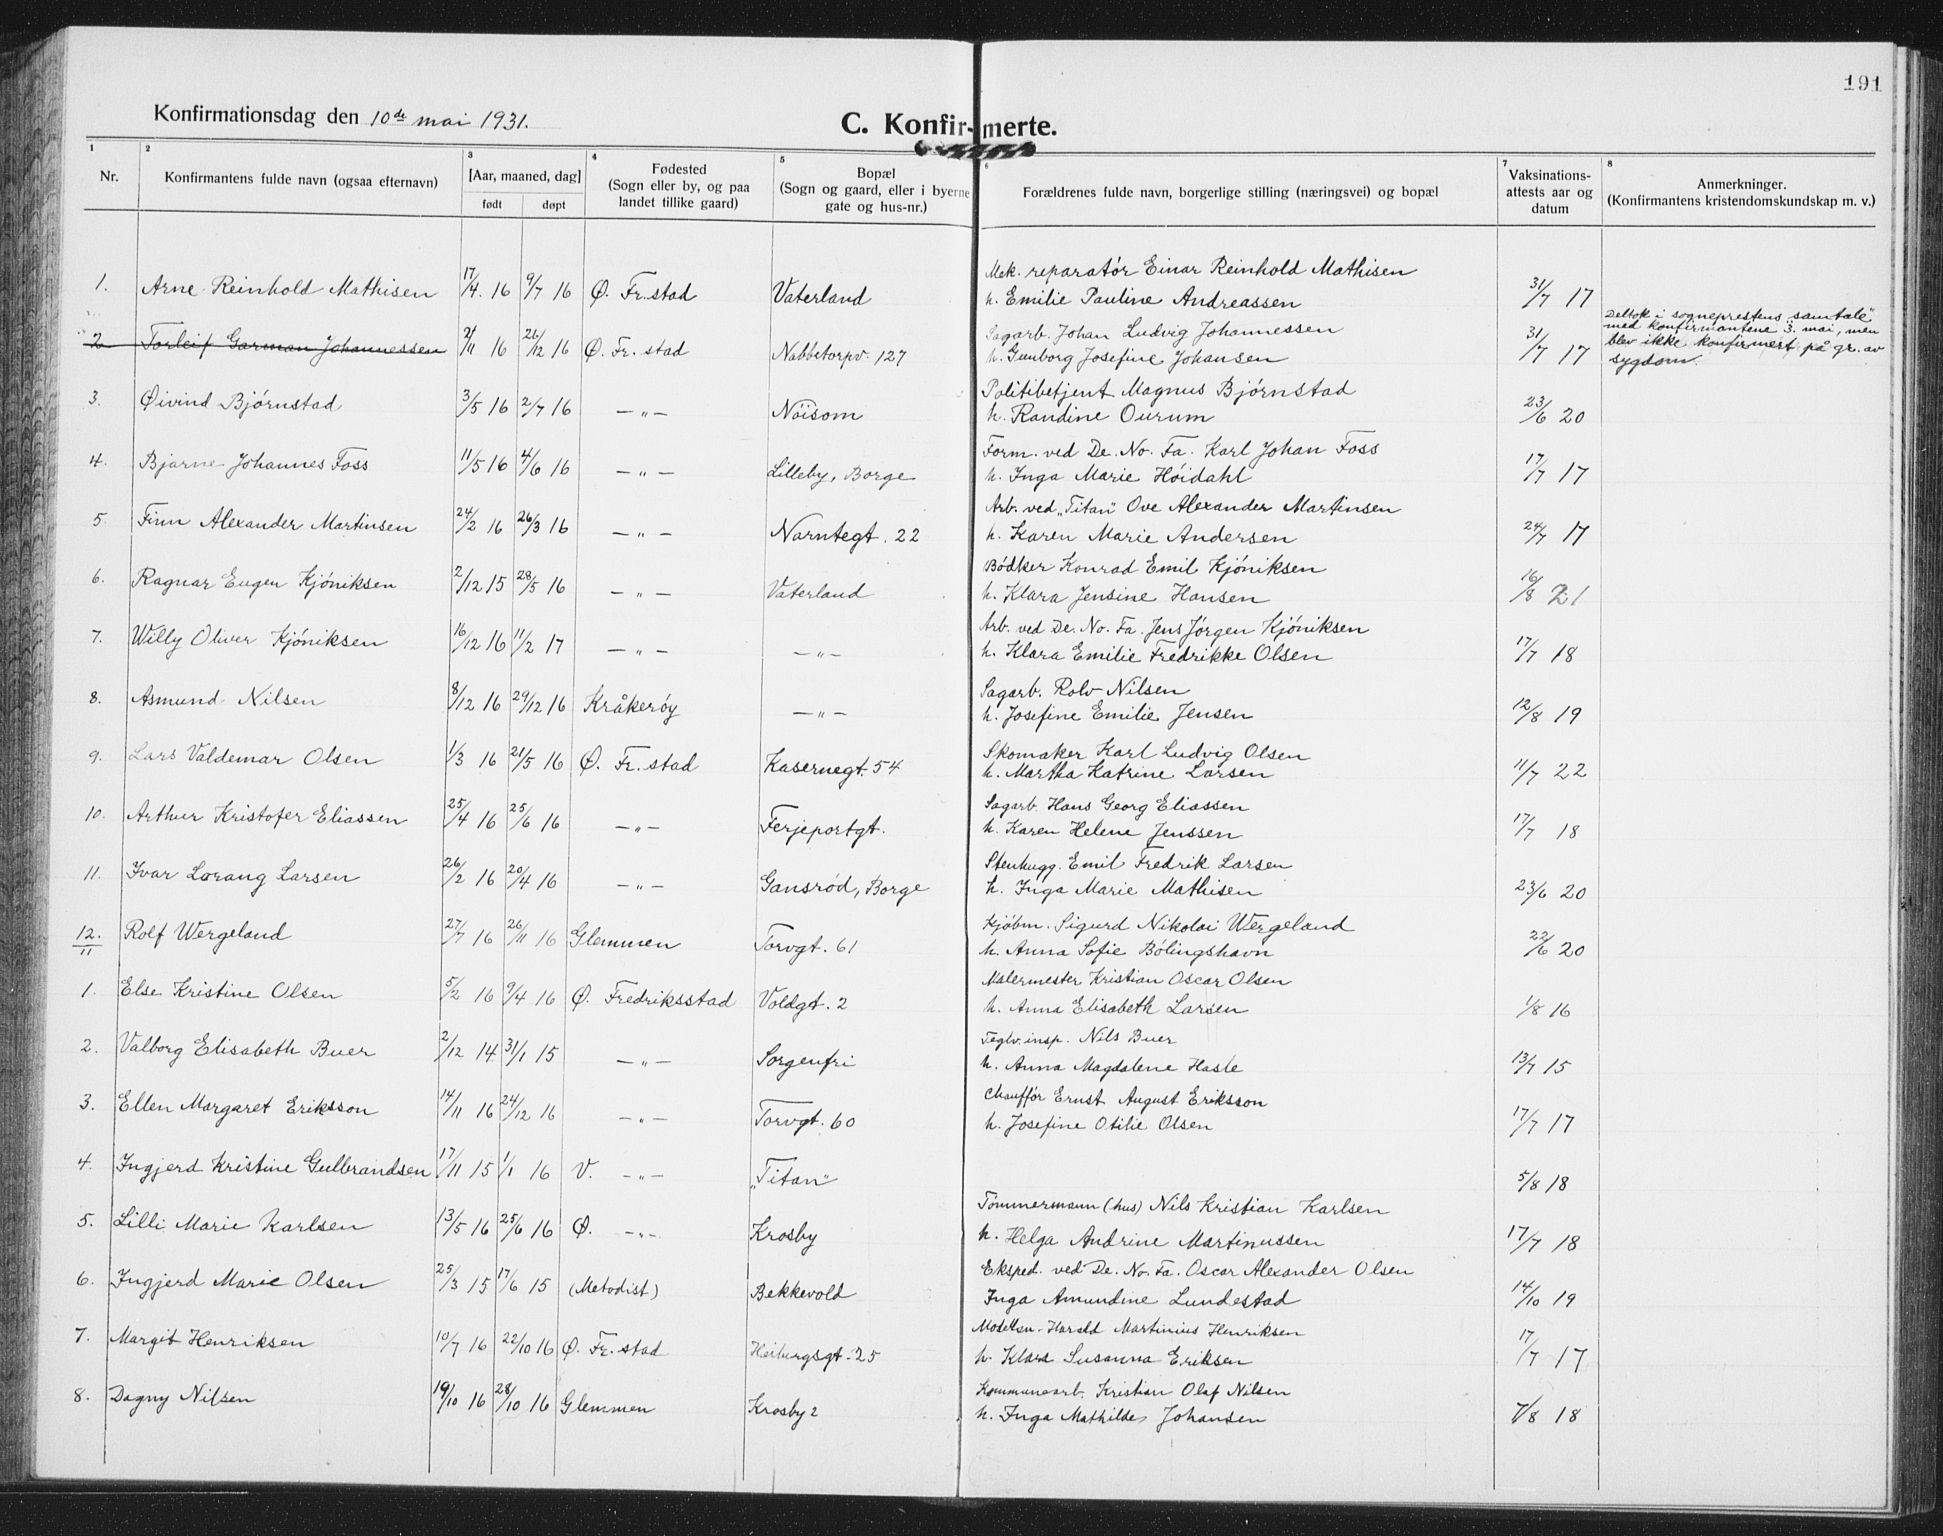 191
Konfirmationsdag den 10de mai 1931.
C. Konfirmerte.
1 2 3 4 5 6 7 8
Nr. Konfirmantens fulde navn (ogsaa efternavn) [Aar, maaned, dag] født døpt Fødested (Sogn eller by, og paa landet tillike gaard) Bopæl (Sogn og gaard, eller i byerne gate og hus-nr.) Forældrenes fulde navn, borgerlige stilling (næringsvei) og bopæl Vaksinations-attests aar og datum Anmerkninger. (Konfirmantens kristendomskundskap m. v.)
1. Arne Reinhold Mathisen 17/4. 16 9/7 16 Ø. Fr. stad Vaterland Mek. reparatör Einar Reinhold Mathisen
h. Emilie Pauline Andreassen 31/7 17
2 Torleif Garman Johannessen 2/11 16 26/12 16 Ø. Fr. stad Nabbetorpv. 127 Sagarb. Johan Ludvig Johannessen
h. Gunborg Josefine Johansen 31/7 17 Deltok i sogneprestens "samtale" med konfirmantene 3. mai, men blev ikke konfirmert på gr. av sygdom.
3. Øivind Bjørnstad 3/5 16 2/7 16 — „ — Nöisom Politibetjent Magnus Bjørnstad
h. Randine Ourum 23/6 20
4. Bjarne Johannes Foss 11/5 16 4/6 16 — „ — Lilleby, Borge Form. ved De. No. Fa. Karl Johan Foss
h. Inga Marie Höidahl 17/7 17
5 Finn Alexander Martinsen 24/2 16 26/3 16 — „ — Narntegt. 22 Arb. ved „Titan" Ove Alexander Martinsen
h. Karen Marie Andersen 24/7 17
6. Ragnar Eugen Kjöniksen 2/12 15 28/5 16 — „ — Vaterland Bödker Konrad Emil Kjöniksen
h. Klara Jensine Hansen 16/8 21
7. Willy Oliver Kjöniksen 16/12 16 11/2 17 — „ — — „ — Arb. ved De. No. Fa. Jens Jörgen Kjöniksen
h. Klara Emilie Fredrikke Olsen 17/7 18
8. Asmund Nilsen 8/12 16 29/12 16 Kråkeröy — „ — Sagarb. Rolv Nilsen
h. Josefine Emilie Jensen 12/8 19
9. Lars Valdemar Olsen 1/3 16 21/5 16 Ø. Fr. stad Kasernegt. 54 Skomaker Karl Ludvig Olsen
h. Martha Katrine Larsen 11/7 22
10. Arthur Kristofer Eliassen 25/4 16 25/6 16 — „ — Ferjeportgt. Sagarb. Hans Georg Eliassen
h. Karen Helene Jenssen 17/7 18
11. Ivar Lorang Larsen 26/2 16 20/4 16 — „ — Gansröd, Borge Stenhugg. Emil Fredrik Larsen
h. Inga Marie Mathisen 23/6 20
12./11 Rolf Wergeland 27/7 16 26/11 16 Glemmen Torvgt. 61 Kjöbm. Sigurd Nikolai Wergeland
h. Anna Sofie Bölingshavn 22/6 20
1. Else Kristine Olsen 5/2 16 9/4 16 Ø. Fredriksstad Voldgt. 2 Malermester Kristian Oscar Olsen
h. Anna Elisabeth Larsen 1/8 16
2. Valborg Elisabeth Buer 2/12 14 31/1 15 — „ — Sorgenfri Teglv. insp. Nils Buer
h. Anna Magdalene Hasle 13/7 15
3. Ellen Margaret Eriksson 14/11 16 24/12 16 — „ — Torvgt. 60 Chaufför Ernst August Eriksson
h. Josefine Otilie Olsen 17/7 17
4. Ingjerd Kristine Gulbrandsen 17/11 15 1/1 16 V. — „ — „Titan" 5/8 18
5. Lilli Marie Karlsen 13/5 16 25/6 16 Ø. — „ — Krosby Tömmermann (hus) Nils Kristian Karlsen
h. Helga Andrine Martinussen 17/7 18
6. Ingjerd Marie Olsen 25/3 15 17/6 15 (Metodist) Bekkevold Eksped. ved De. No. Fa. Oscar Alexander Olsen
Inga Amundine Lundestad 14/10 19
7. Margit Henriksen 10/7 16 22/10 16 Ø. Fr. stad Heibergsgt. 25 Modellsn. Harald Martinius Henriksen
h. Klara Susanna Eriksen 17/7 17
8. Dagny Nilsen 19/10 16 28/10 16 Glemmen Krosby 2 Kommunearb. Kristian Olaf Nilsen
h. Inga Mathilde Johansen 7/8 18